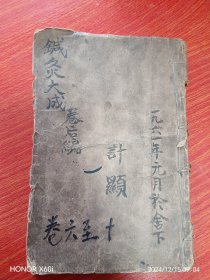 鍼灸大成
卷后編
計顯
一九六一年元月於舍下
卷六至十
HONOR X60i
2024/12/15 09:04